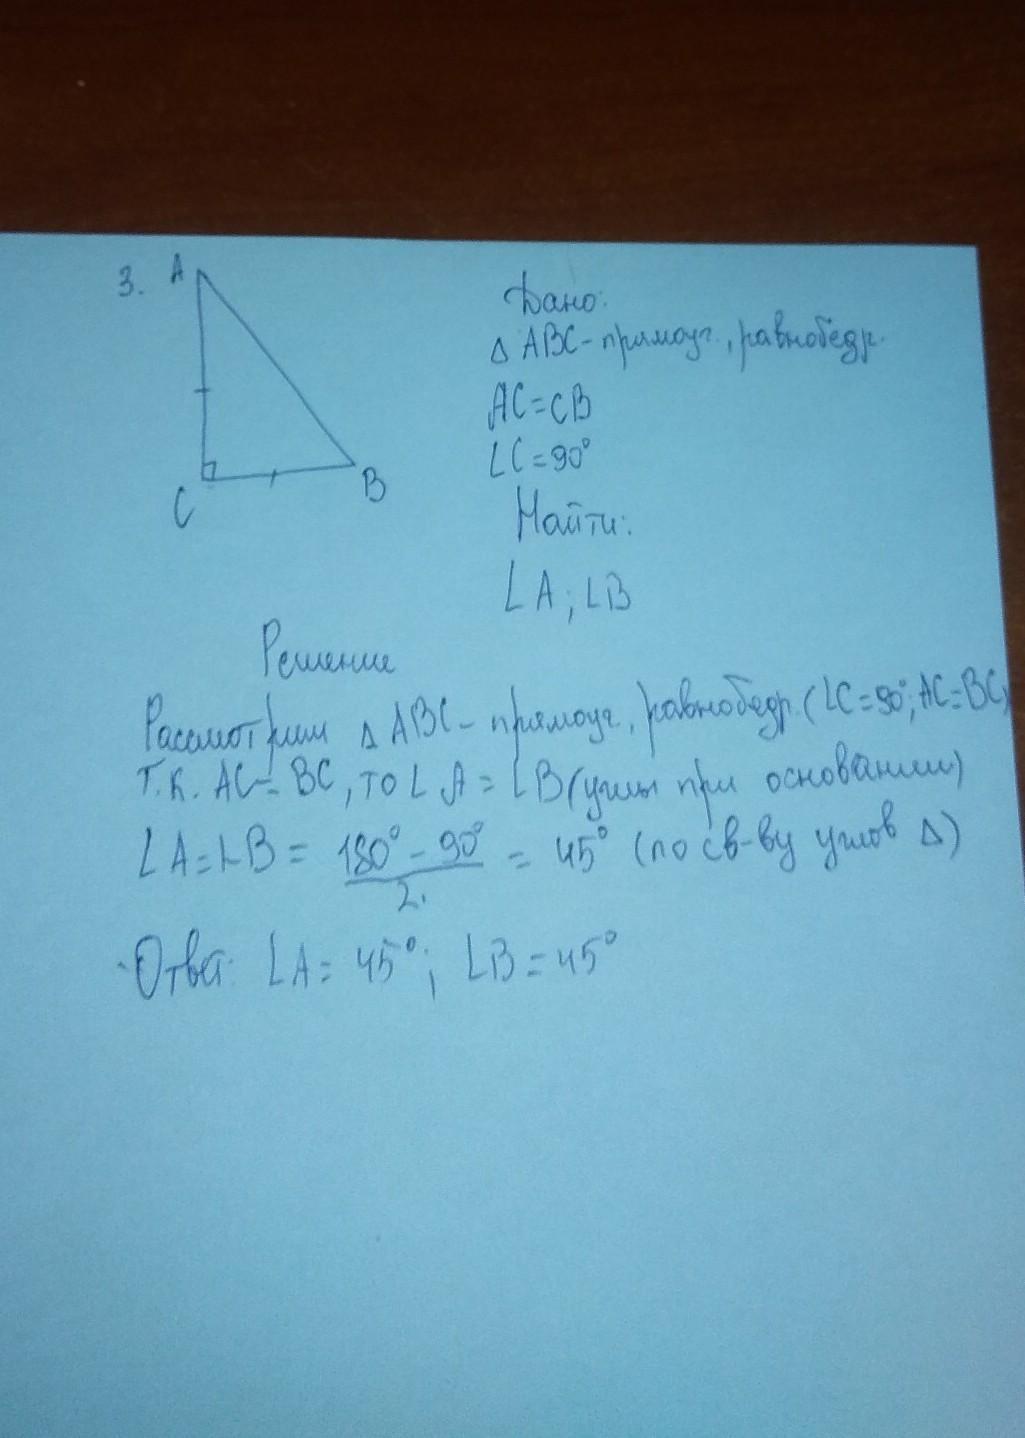 3. A
C
B
Дано:
Δ ABC - прямоуг., равнобедр.
AC = CB
∠C = 90°
Найти:
∠A ; ∠B
Решение
Рассмотрим Δ ABC - прямоуг., равнобедр. (∠C = 90°; AC = BC)
Т.к. AC = BC, то ∠A = ∠B (углы при основании)
∠A = ∠B = (180° - 90°)/2 = 45° (по св-ву углов Δ)
Ответ: ∠A = 45°; ∠B = 45°